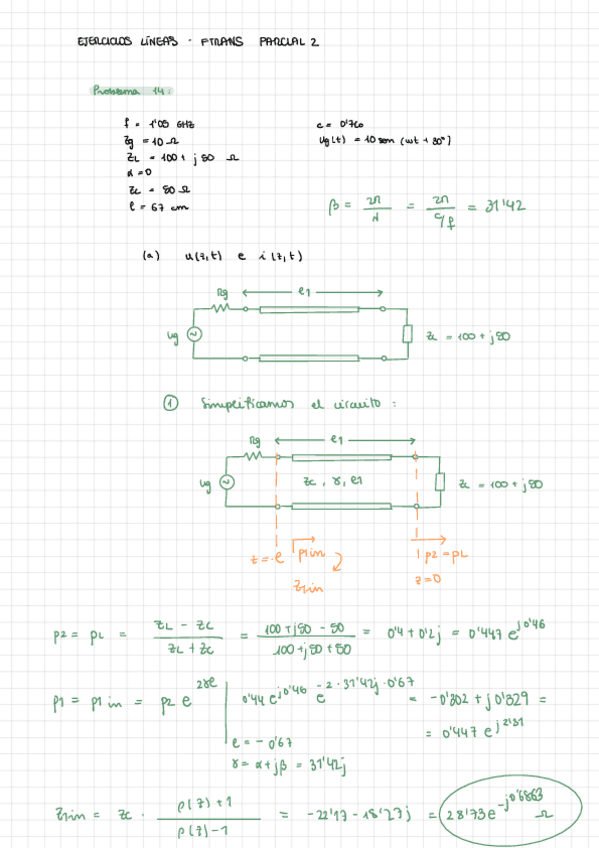 EJERCICIOS LÍNEAS - FTRANS PARCIAL 2
Problema 14:
f = 1'05 GHz
Zg = 10 Ω
ZL = 100 + j 50 Ω
α = 0
Zc = 50 Ω
l = 67 cm
c = 0'7c0
Ug(t) = 10 sen (wt + 30°)
β = 2π/λ = 2π/(c/f) = 31'42
(a) u(z,t) e i(z,t)
Rg
l1
Ug
ZL = 100 + j50
① Simplificamos el circuito:
Rg
l1
Ug
Zc, γ, l1
ZL = 100 + j50
z = -l
ρ1in
ρ2 = ρL
Z1in
z=0
ρ2 = ρL = (ZL - Zc)/(ZL + Zc) = (100 + j50 - 50)/(100 + j50 + 50) = 0'4 + 0'2j = 0'447 e^j0'46
ρ1 = ρ1in = ρ2 e^2γl | 0'44 e^j0'46 e^-2·31'42j·0'67 = -0'302 + j0'329 =
= 0'447 e^j2'31
l = -0'67
γ = α + jβ = 31'42j
Z1in = Zc · (ρ(z)+1)/(ρ(z)-1) = -22'17 - 18'27j = 28'73 e^-j0'6863 Ω